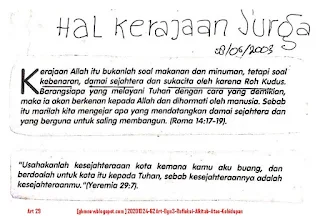 Hal Kerajaan Surga
28/09/2003
Kerajaan Allah itu bukanlah soal makanan dan minuman, tetapi soal
kebenaran, damai sejahtera dan sukacita oleh karena Roh Kudus.
Barangsiapa yang melayani Tuhan dengan cara yang demikian,
maka ia akan berkenan kepada Allah dan dihormati oleh manusia. Sebab
itu marilah kita mengejar apa yang mendatangkan damai sejahtera dan
yang berguna untuk saling membangun. (Roma 14:17-19).
"Usahakanlah kesejahteraaan kota kemana kamu aku buang, dan
berdoalah untuk kota itu kepada Tuhan, sebab kesejahteraannya adalah
kesejahteraanmu."(Yeremia 29:7).
Art 29